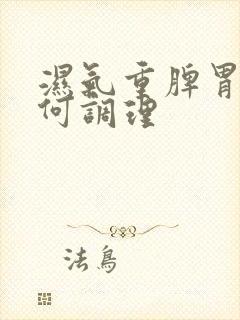 濕氣重脾胃
何調理
法鳥